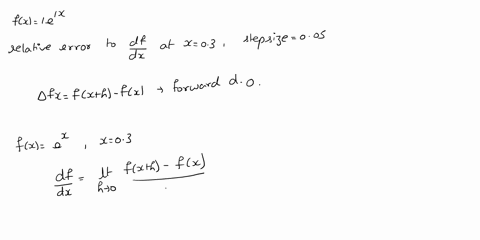 f(x) = 1.e^{1x}
relative error to df/dx at x=0.3, stepsize=0.05
Δfx = f(x+h)-f(x) → forward d.o.
f(x) = e^x , x=0.3
df/dx = lt h→0 f(x+h) - f(x)